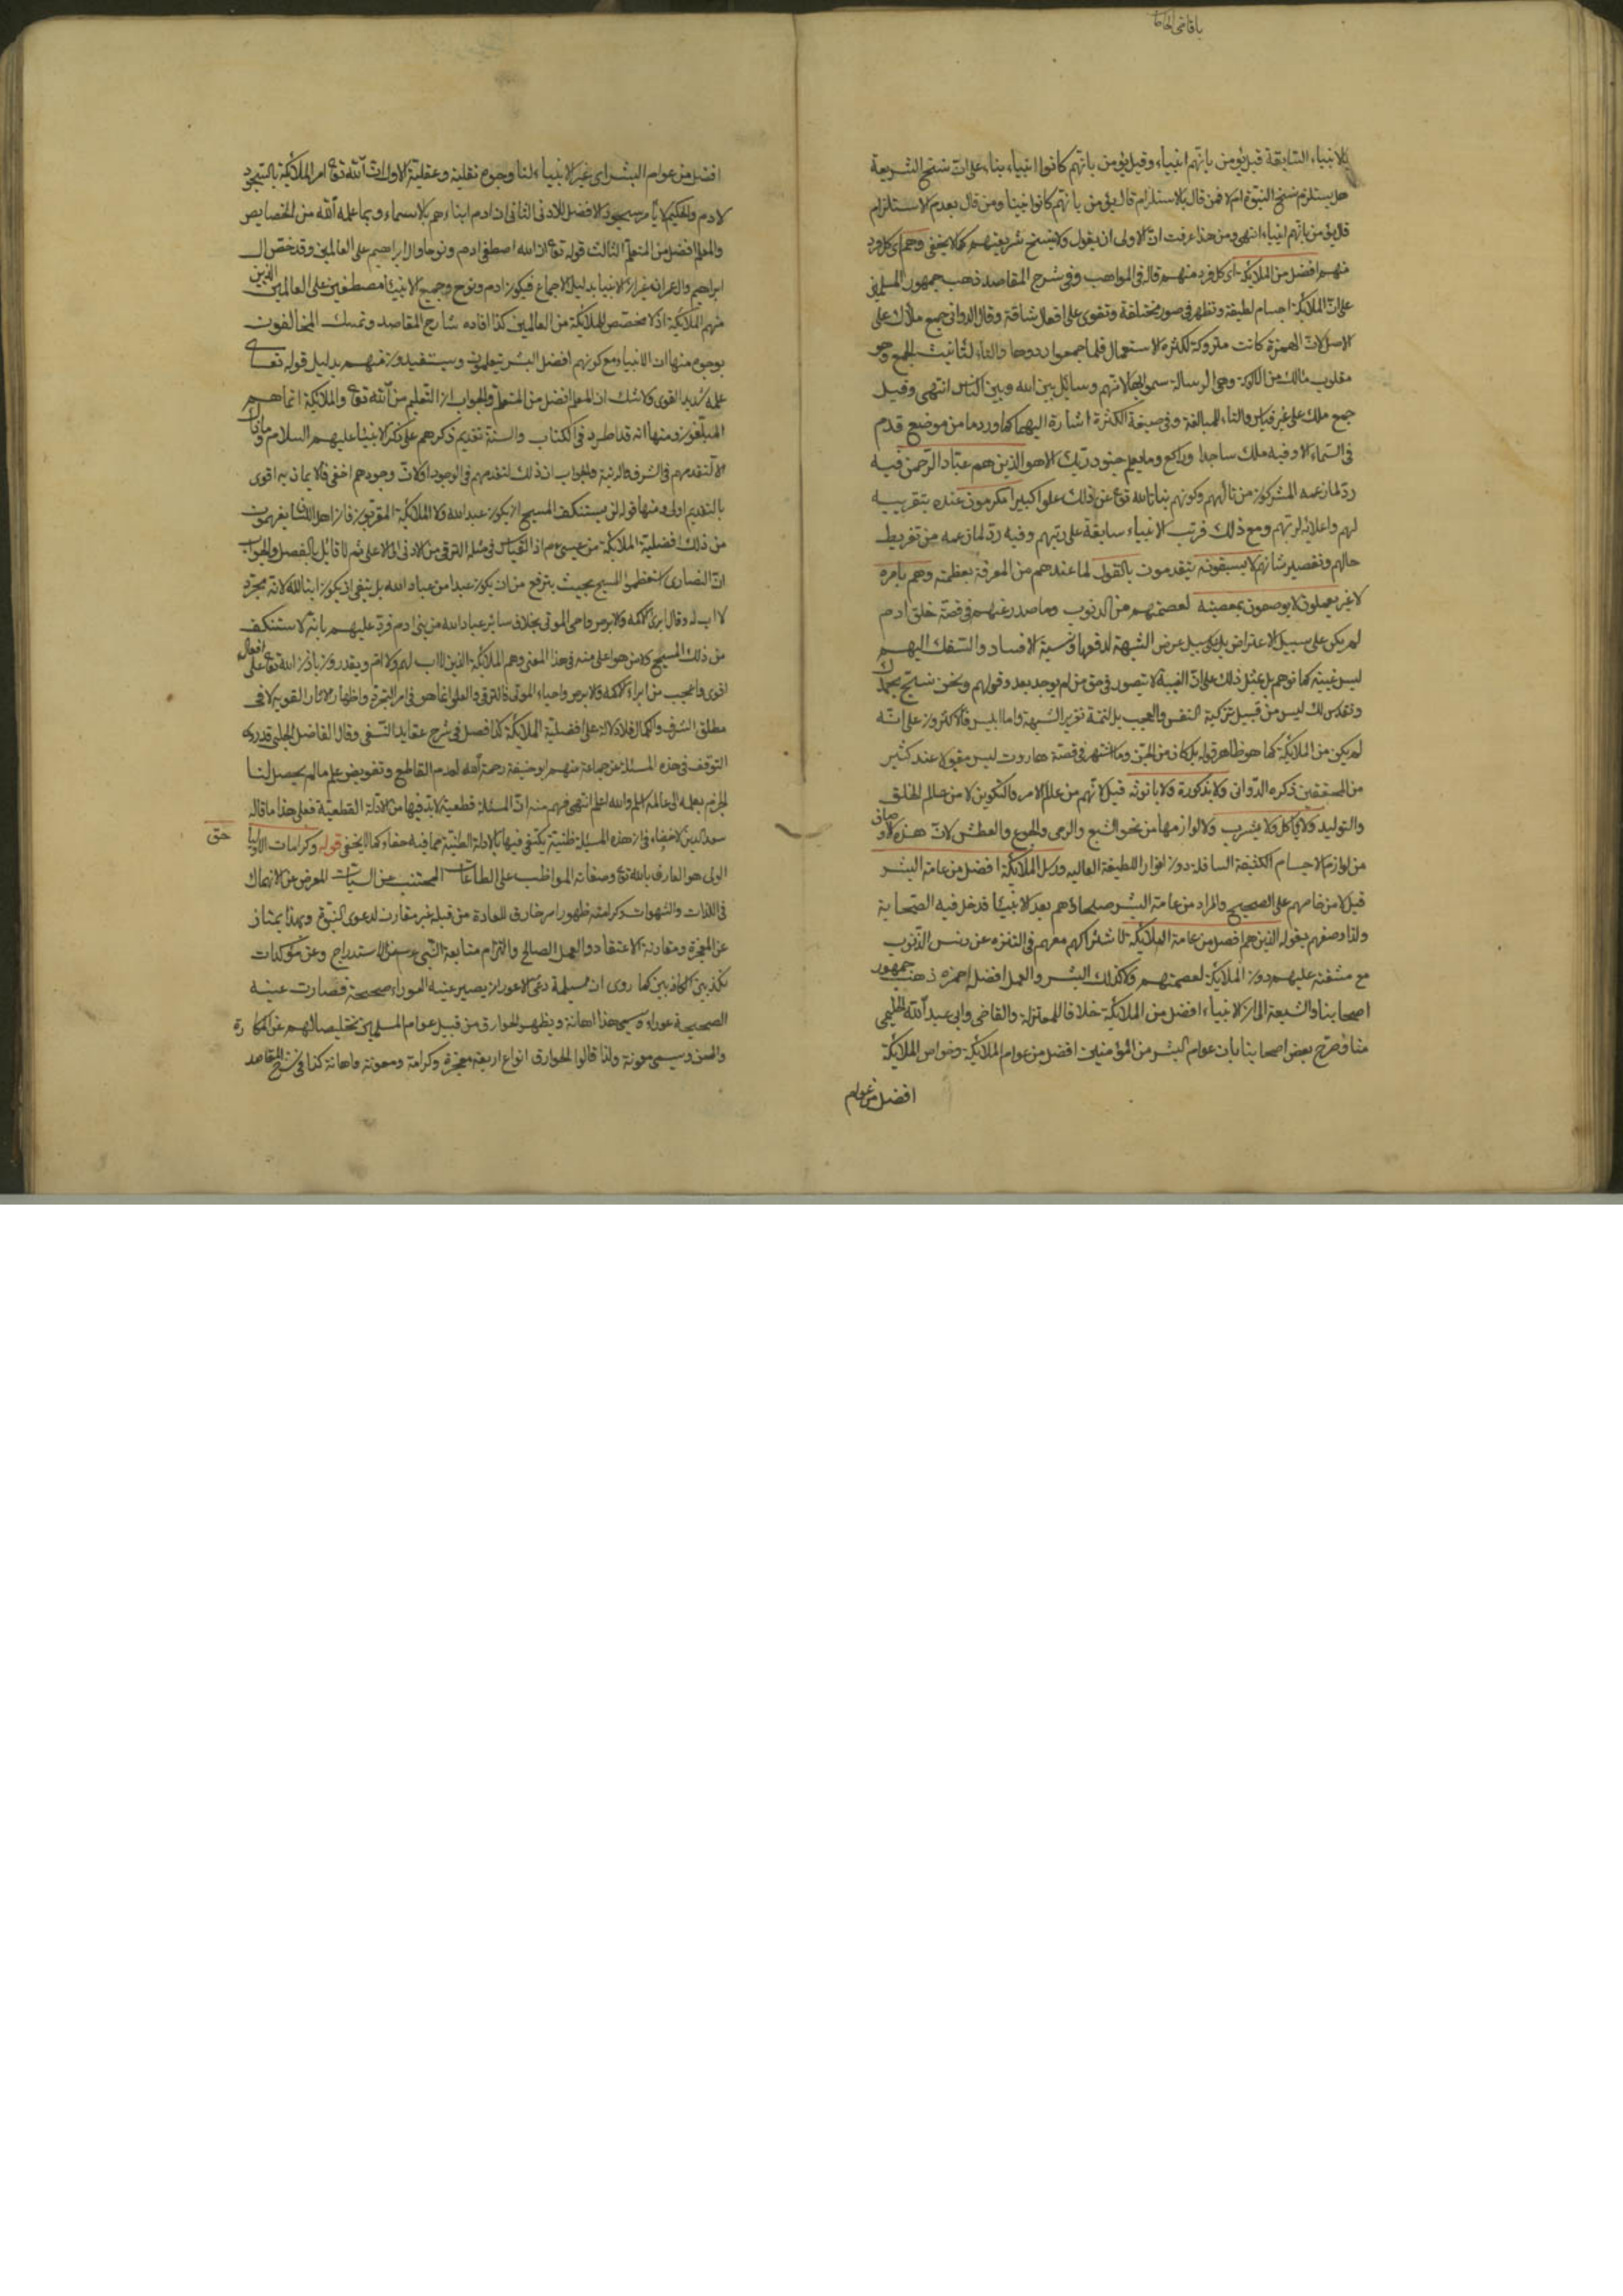 يا قاضى الحاجا
الانبياء السابقة قيل يؤمن بانهم انبياء وقيل يؤمن بانهم كانوا انبياء بناء على ان نسخ الشريعة
هل يستلزم نسخ النبوة ام لا فمن قال بالاستلزام قال يؤمن بانهم كانوا انبياء ومن قال بعدم الاستلزام
قال يؤمن بانهم انبياء انتهى ومن هذا عرفت ان الاولى ان يقول ولا ينسخ شريعتهم كما لا يخفى وهم اى كل فرد
منهم افضل من الملائكة اى كل فرد منهم قاله فى المواهب وفى شرح المقاصد ذهب جمهور المسلمين
على ان الملائكة اجسام لطيفة وتظهر فى صور مختلفة وتقوى على افعال شاقة وقال الدوانى جمع ملأك على
الاصل لان الهمزة كانت متروكة لكثرة الاستعمال فلما جمعوا ردوها والتاء لتانيث الجمع وهو
مقلوب مالك من الالوكة وهى الرسالة سموا بها لانهم وسائل بين الله وبين الناس انتهى وقيل
جمع ملك على غير قياس والتاء للمبالغة وفى صيغة الكثرة اشارة اليها كما ورد ما من موضع قدم
فى السماء الا وفيه ملك ساجد او راكع وما يعلم جنود ربك الا هو الذين هم عباد الرحمن فيه
رد لما زعمه المشركون من تالههم وكونهم بنات الله تع عن ذلك علوا كبيرا مكرمون عنده بتقريبه
لهم واعلائه لرتبهم ومع ذلك فرتب الانبياء سابقة على رتبهم وفيه رد لما زعمه من تفريط
حالهم وتقصير شانهم لا يسبقونه يتقدمون بالقول لما عندهم من المعرفة بعظمته وهم بامره
لا غير يعملون لا يوصفون بمعصية لعصمتهم من الذنوب وما صدر عنهم فى قصة خلق ادم
لم يكن على سبيل الاعتراض بل على سبيل عرض الشبهة لدفعها ونسبة الافساد والسفك اليهم
ليس غيبة كما توهم بل بمثل ذلك على ان الغيبة لا تتصور فى حق من لم يوجد بعد وقولهم ونحن نسبح بحمدك
ونقدس لك ليس من قبيل تزكية النفس والعجب بل لتتمة تقرير الشبهة واما ابليس فالاكثرون على انه
لم يكن من الملائكة كما هو ظاهر قوله بل كان من الجن وما اشتهر فى قصة هاروت ليس مقبولا عند كثير
من المحققين ذكره الدوانى ولا بذكورة ولا بانوثة قيل لانهم من عالم الامر والتكوين لا من عالم الخلق
والتوليد ولا باكل ولا يشرب ولا لوازمها من نحو الشبع والرى والجوع والعطش لان هذه الاوصاف
من لوازم الاجسام الكثيفة السافلة دون انوار اللطيفة العالية ورسل الملائكة افضل من عامة البشر
قيل لا من خاصهم على الصحيح والمراد من عامة البشر صلحاؤهم بعد الانبياء فدخل فيه الصحابة
ولذا وصفهم بقوله الذين هم افضل من عامة الملائكة لاشتراكهم معهم فى التنزه عن دنس الذنوب
مع مشقته عليهم دون الملائكة لعصمتهم وكذلك البشر والعمل افضل احمزه ذهب جمهور
اصحابنا والشيعة الى ان الانبياء افضل من الملائكة خلافا للمعتزلة والقاضى وابى عبد الله الحليمى
منا وصرح بعض اصحابنا بان عوام البشر من المؤمنين افضل من عوام الملائكة وخواص الملائكة
افضل من عوام
افضل من عوام البشر اى غير الانبياء لنا وجوه نقلية وعقلية الاول ان الله تع امر الملائكة بالسجود
لادم والحكيم لا يأمر بسجود الافضل للادنى الثانى ان ادم انباءهم بالاسماء وبما علمه الله من الخصايص
والمعلم افضل من المتعلم الثالث قوله تع ان الله اصطفى ادم ونوحا وال ابراهيم على العالمين وقد خص ال
ابراهيم وال عمران غير الانبيا بدليل الاجماع فيكون ادم ونوح وجميع الانبياء مصطفين على العالمين الذين
منهم الملائكة اذ لا مخصص للملائكة من العالمين كذا افاده شارح المقاصد وتمسك المخالفون
بوجوه منها ان الانبياء مع كونهم افضل البشر يتعلمون ويستفيدون منهم بدليل قوله تعالى
علمه شديد القوى ولا شك ان المعلم افضل من المتعلم والجواب ان التعليم من الله تع والملائكة انما هم
المبلغون ومنها انه قد اطرد فى الكتاب والسنة تقديم ذكرهم على ذكر الانبياء عليهم السلام وما ذاك
الا لتقدمهم فى الشرف والرتبة والجواب ان ذلك لتقدمهم فى الوجود او لان وجودهم اخفى فالايمان به اقوى
بالتقديم اولى ومنها قوله لن يستنكف المسيح ان يكون عبد الله ولا الملائكة المقربون فان اهل اللسان يفهمون
من ذلك افضلية الملائكة من عيسى عم اذ القياس فى مثله الترقى من الادنى الى الاعلى ثم لا قائل بالفصل والجواب
ان النصارى استعظموا المسيح بحيث يترفع من ان يكون عبدا من عباد الله بل ينبغى ان يكون ابنا لله لانه مجرد
لا اب له وقال ابرئ الاكمه والابرص واحى الموتى بخلاف سائر عباد الله من بنى ادم فرد عليهم بانه لا يستنكف
من ذلك المسيح ولا من هو اعلى منه فى هذا المعنى وهم الملائكة الذين لا اب لهم ولا ام ويقدرون باذن الله تع على افعال
اقوى واعجب من ابراء الاكمه والابرص واحياء الموتى فالترقى والعلو انما هو فى امر التجرد واظهار الاثار القوية لا فى
مطلق الشرف والكمال فلا دلالة على افضلية الملائكة كذا فصل فى شرح عقايد النسفى وقال الفاضل الجلبى قد روى
التوقف فى هذه المسئلة عن جماعة منهم ابو حنيفة رحمة الله لعدم القاطع وتفويض علم ما لم يحصل لنا
الجزم بعلمه الى عالمه اسلم والله اعلم انتهى فهم منه ان المسئلة قطعية لا بد فيها من الادلة القطعية فعلى هذا ما قاله
سعد الدين لا خفاء فى ان هذه المسئلة ظنية يكتفى فيها بالادلة الظنية مما فيه خفاء كما لا يخفى قوله وكرامات الاوليا حق
الولى هو العارف بالله تع وصفاته المواظب على الطاعات المجتنب عن السيات المعرض عن الانهماك
فى اللذات والشهوات وكرامته ظهور امر خارق للعادة من قبله غير مقارن لدعوى النبوة وبهذا يمتاز
عن المعجزة ومقارنة الاعتقاد والعمل الصالح والتزام متابعة النبى عم عن الاستدراج وعن مؤكدات
تكذيب الكاذبين كما روى ان مسيلمة دعى لاعور ان يصير عينه العوراء صحيحة فصارت عينه
الصحيحة عوراء ويسمى هذا اهانة ويظهر الخوارق من قبيل عوام المسلمين تخليصا لهم عن المكاره
والمحن ويسمى معونة ولذا قالوا الخوارق انواع اربعة معجزة وكرامة ومعونة واهانة كذا فى شرح المقاصد